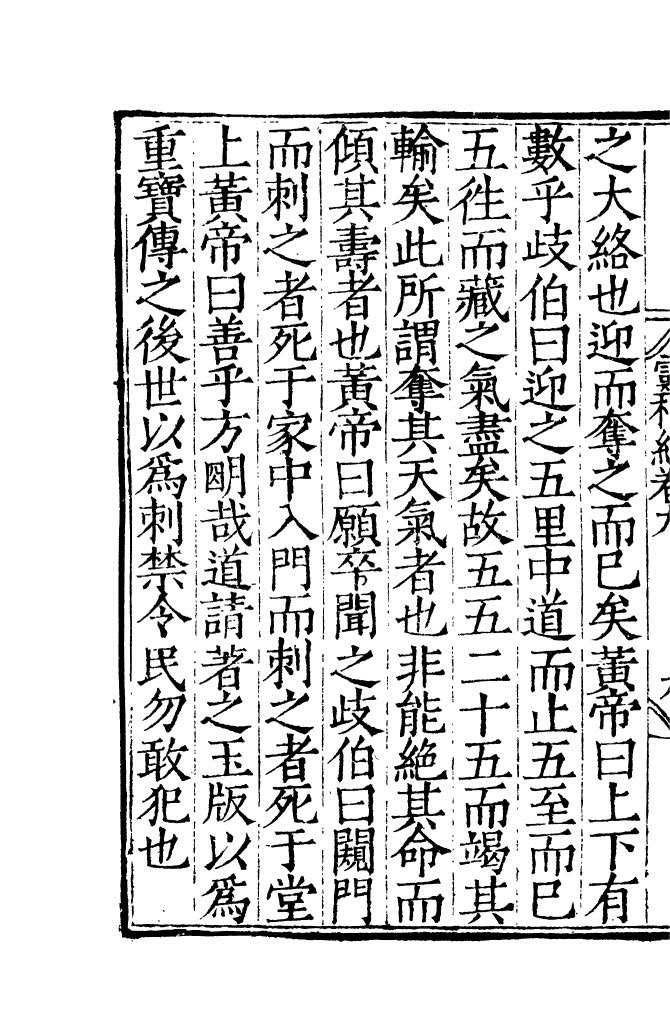 之大絡也迎而奪之而已矣黃帝曰上下有
數乎歧伯曰迎之五里中道而止五至而已
五徃而藏之氣盡矣故五五二十五而竭其
輸矣此所謂奪其天氣者也非能絶其命而
傾其壽者也黃帝曰願卒聞之歧伯曰闚門
而刺之者死于家中入門而刺之者死于堂
上黃帝曰善乎方明哉道請著之玉版以爲
重寶傳之後世以爲刺禁令民勿敢犯也